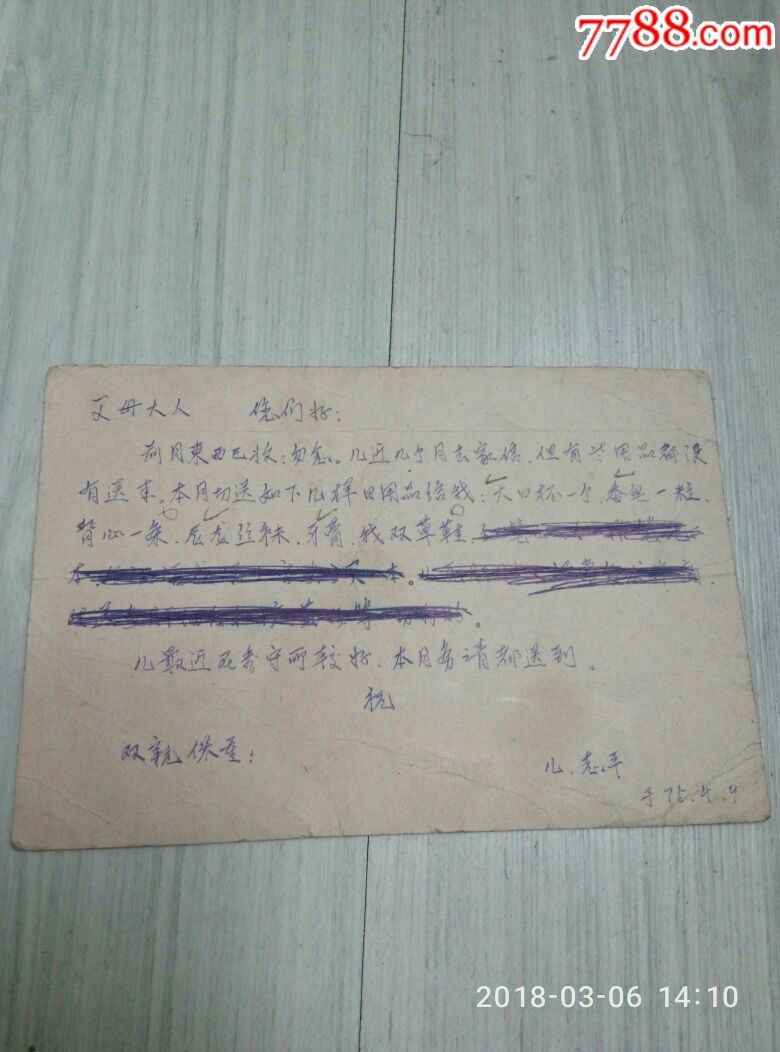 7788.com
父母大人 您们好:
前月東西已收:勿念。儿近几个月去家信,但有些用品都没
有送来。本月切送如下几样日用品给我:大口杯一个,香皂一粒,
背心一条,尼龙丝袜,牙膏,我双草鞋
本。
儿最近在看守所较好,本月务请都送到。
祝
双親保重:
儿.志平
于75.4.4
2018-03-06 14:10